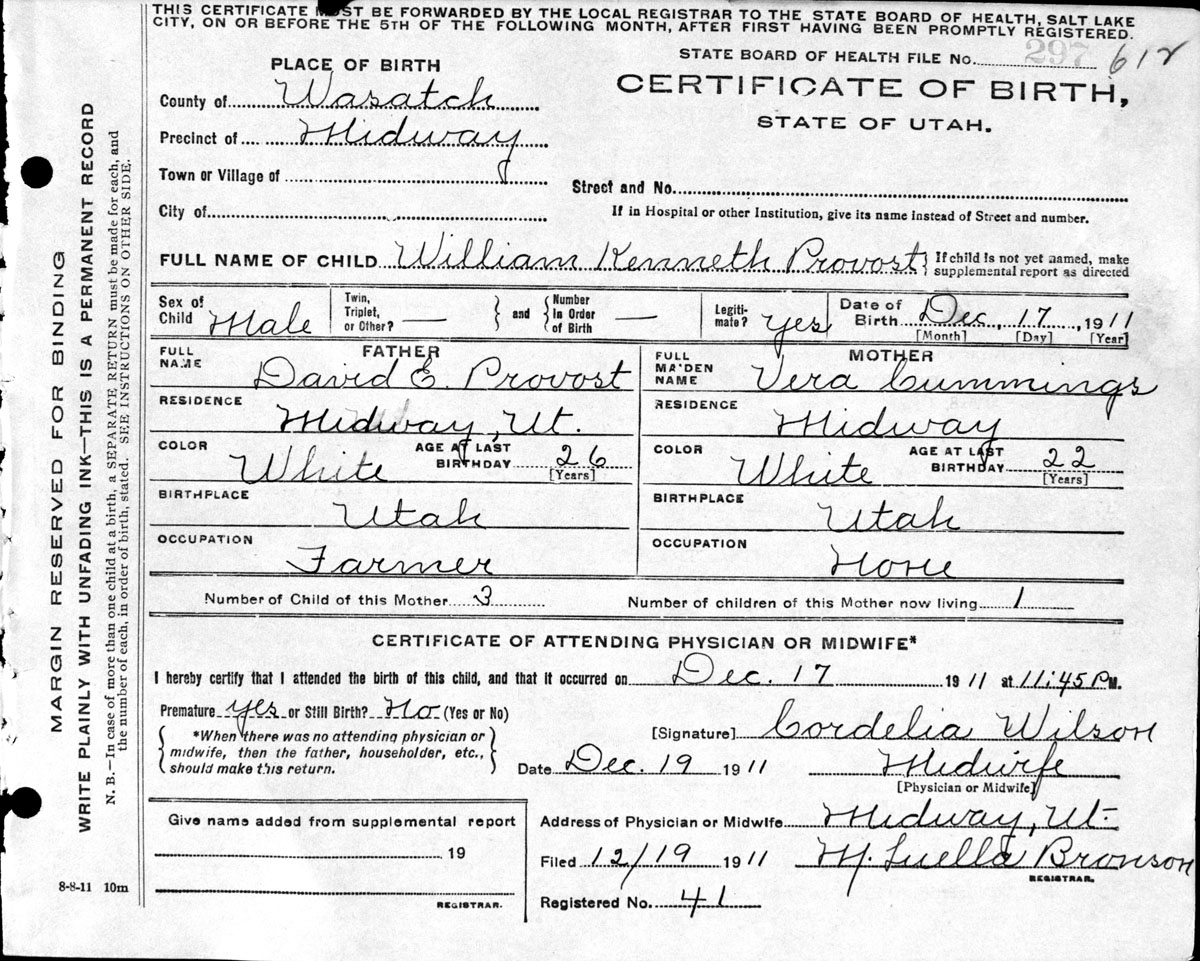 THIS CERTIFICATE MUST BE FORWARDED BY THE LOCAL REGISTRAR TO THE STATE BOARD OF HEALTH, SALT LAKE
CITY, ON OR BEFORE THE 5TH OF THE FOLLOWING MONTH, AFTER FIRST HAVING BEEN PROMPTLY REGISTERED.
STATE BOARD OF HEALTH FILE No. 297 612
PLACE OF BIRTH
CERTIFICATE OF BIRTH,
STATE OF UTAH.
County of Wasatch
Precinct of Midway
Town or Village of
Street and No.
City of
If in Hospital or other Institution, give its name instead of Street and number.
FULL NAME OF CHILD William Kenneth Provost { If child is not yet named, make
supplemental report as directed
Sex of Child Male
Twin, Triplet, or Other? — } and { Number In Order of Birth —
Legiti-mate? yes
Date of Birth Dec, 17, 1911
[Month] [Day] [Year]
FATHER
FULL NAME David E. Provost
RESIDENCE Midway, Ut.
COLOR White AGE AT LAST BIRTHDAY 26 [Years]
BIRTHPLACE Utah
OCCUPATION Farmer
MOTHER
FULL MAIDEN NAME Vera Cummings
RESIDENCE Midway
COLOR White AGE AT LAST BIRTHDAY 22 [Years]
BIRTHPLACE Utah
OCCUPATION None
Number of Child of this Mother 3 Number of children of this Mother now living 1
CERTIFICATE OF ATTENDING PHYSICIAN OR MIDWIFE*
I hereby certify that I attended the birth of this child, and that it occurred on Dec. 17 1911 at 11:45 P M.
Premature yes or Still Birth? No (Yes or No)
{ *When there was no attending physician or
midwife, then the father, householder, etc.,
should make this return. }
[Signature] Cordelia Wilson
Date Dec. 19 1911 Midwife
[Physician or Midwife]
Address of Physician or Midwife Midway, Ut.
Filed 12/19 1911 M. Luella Bronson
REGISTRAR.
Registered No. 41
Give name added from supplemental report
19
REGISTRAR.
8-8-11 10m
MARGIN RESERVED FOR BINDING
WRITE PLAINLY WITH UNFADING INK—THIS IS A PERMANENT RECORD
N. B.—In case of more than one child at a birth, a SEPARATE RETURN must be made for each, and
the number of each, in order of birth, stated. SEE INSTRUCTIONS ON OTHER SIDE.